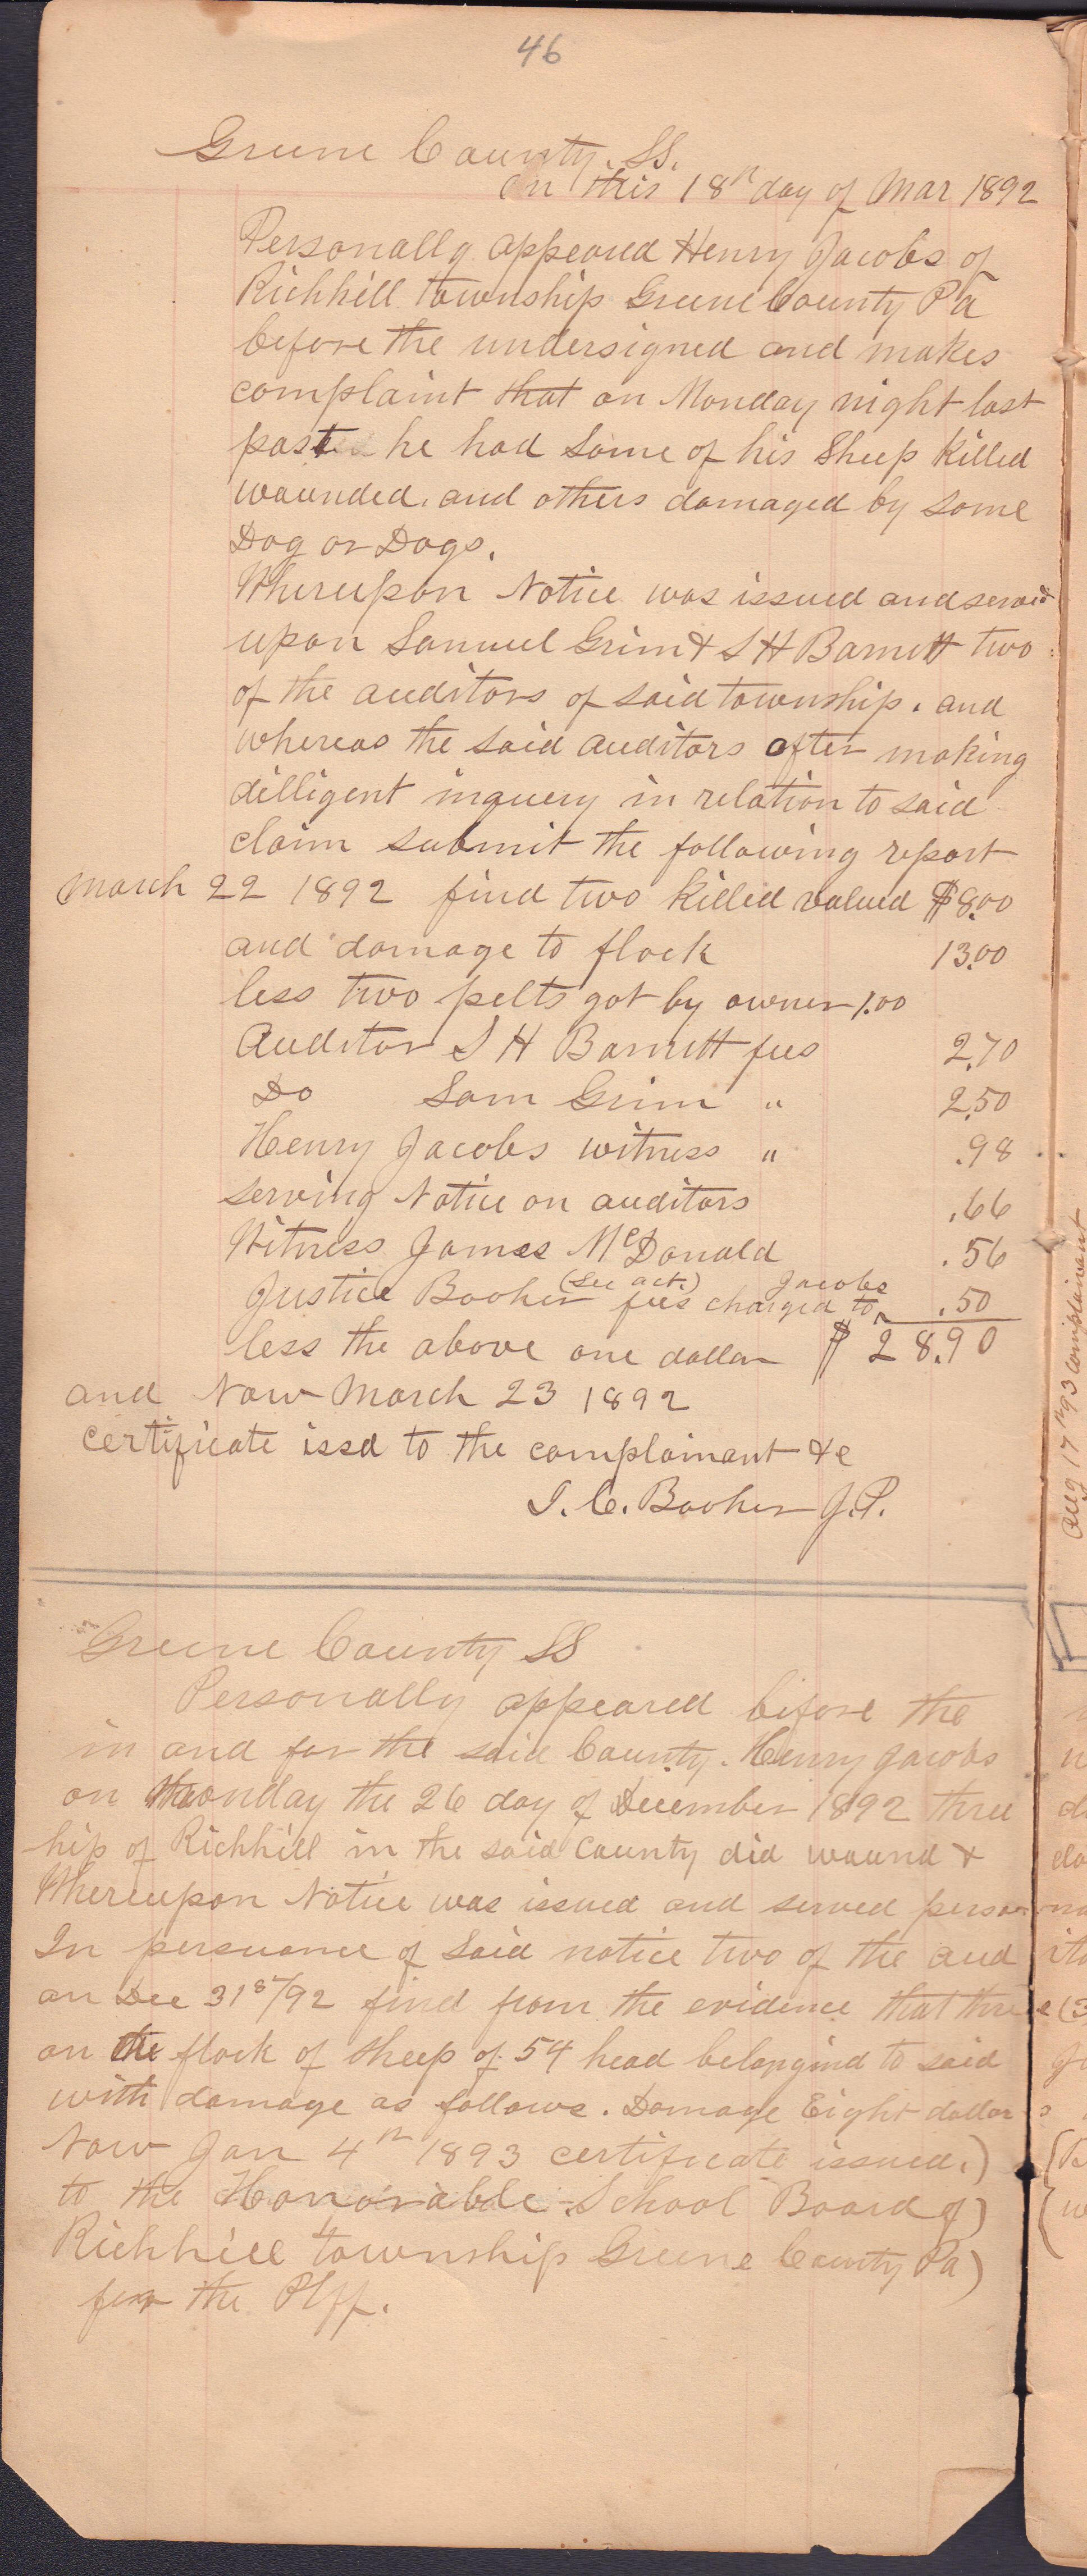 46
Greene County. SS.
On this 18th day of Mar 1892
Personally appeared Henry Jacobs of
Richhill township Greene County Pa
before the undersigned and makes
complaint that on Monday night last
past he had some of his Sheep Killed
wounded. and others damaged by some
Dog or Dogs.
Whereupon Notice was issued and served
upon Samuel Grim & S H Barnett two
of the auditors of said township. and
whereas the said auditors after making
dilligent inquery in relation to said
claim submit the following report
March 22 1892 find two killed valued $8.00
and damage to flock 13.00
less two pelts got by owner 1.00
Auditor S H Barnett fees 2.70
Do Sam Grim " 2.50
Henry Jacobs witness " .98
serving Notice on auditors .66
Witness James McDonald .56
Justice Booher (See act.) fees charged to Jacobs .50
less the above one dollar $28.90
and Now March 23 1892
certificate issd to the complainant &c
J. C. Booher J.P.
Greene County SS
Personally appeared before the
in and for the said County. Henry Jacobs
on Monday the 26 day of December 1892 three
hip of Richhill in the said County did wound &
Whereupon Notice was issued and served person
In persuance of Said notice two of the aud
on Dec 31st/92 find from the evidence that three (3
on the flock of sheep of 54 head belongind to said
with damage as follows. Damage Eight dollars
Now Jan 4th 1893 certificate issued.)
to the Honorable School Board of)
Richhill township Greene County Pa)
for the Plff.
Aug 17th 93 complainant